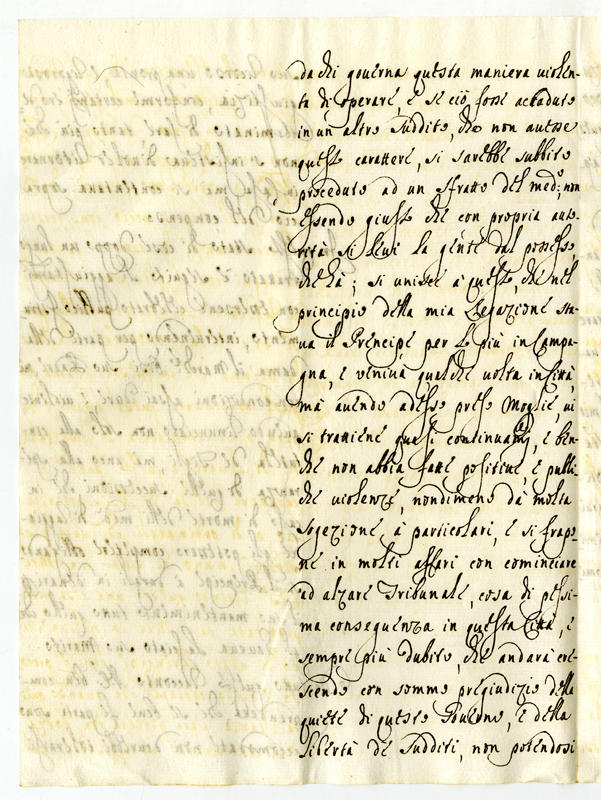 da chi governa questa maniera violen-
ta di operare, e se ciò fosse accaduto
in un altro suddito, che non avesse
questo carattere, si sarebbe subbito
proceduto ad un sfratto del med.º, non
essendo giusto che con propria auto-
rità si levi la gente dal possesso,
che hà; si unisce à questo, che nel
principio della mia Legazione sta-
va il Principe per lo più in Campa-
gna, e veniva qualche volta in Città,
mà avendo adesso preso Moglie, vi
si trattiene quasi continuam.te, e ben-
che non abbia fatte positive, e publi-
che violenze, nondimeno dà molta
sogezione à particolari, e si frapo-
ne in molti affari con cominciare
ad alzare Tribunale, cosa di pessi-
ma conseguenza in questa Città, e
sempre più dubito, che andarà cre-
scendo con sommo pregiudizio della
quiete di questo Governo, e della
libertà de Sudditi, non potendosi